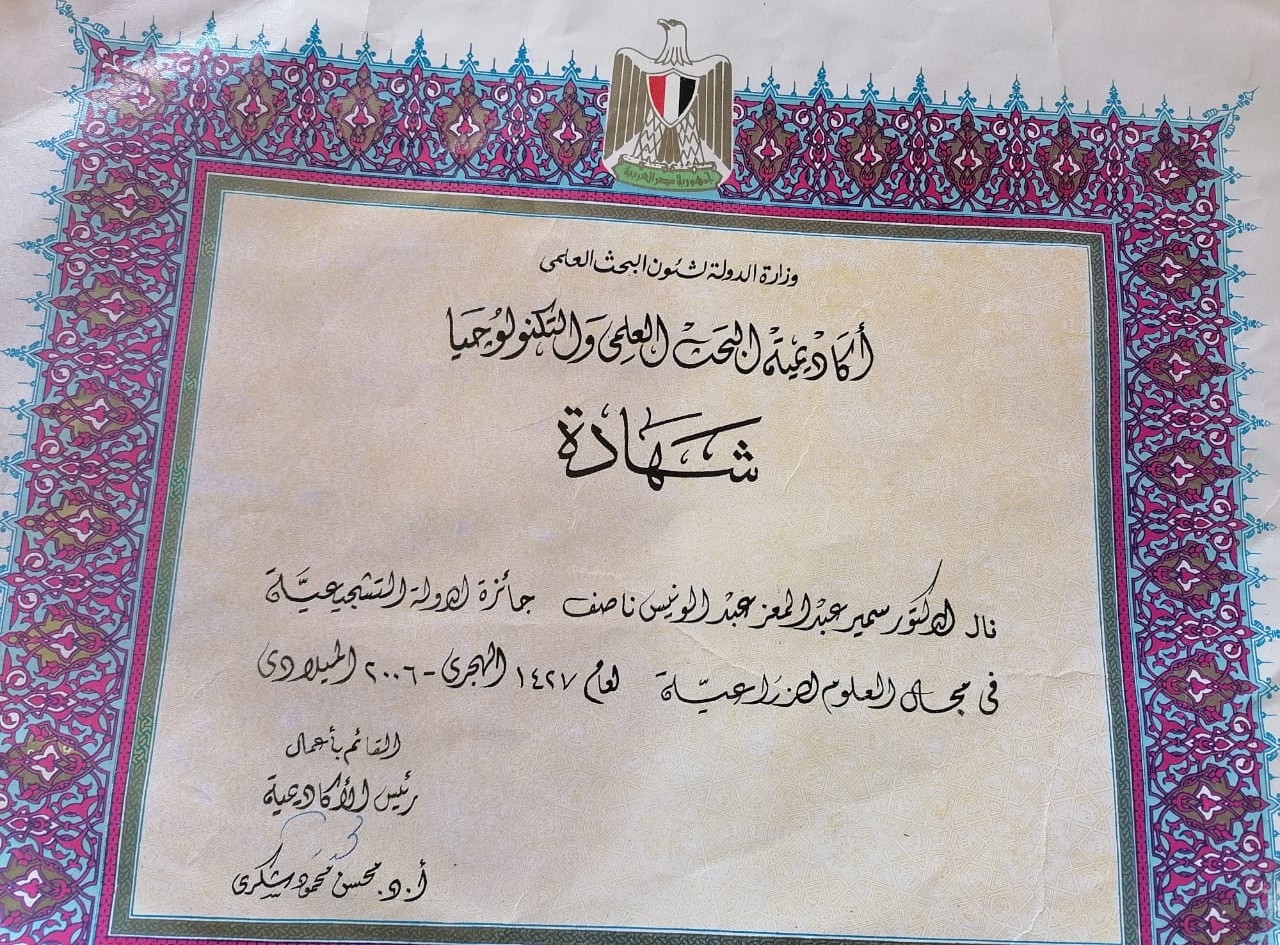 جمهورية مصر العربية
وزارة الدولة لشئون البحث العلمى
أكاديمية البحث العلمى والتكنولوجيا
شهادة
نال الدكتور سمير عبد المعز عبد الونيس ناصف جائزة الدولة التشجيعية
فى مجال العلوم الزراعية لعام ١٤٢٧ الهجرى - ٢٠٠٦ الميلادى
القائم بأعمال
رئيس الأكاديمية
أ.د. محسن محمود شكرى